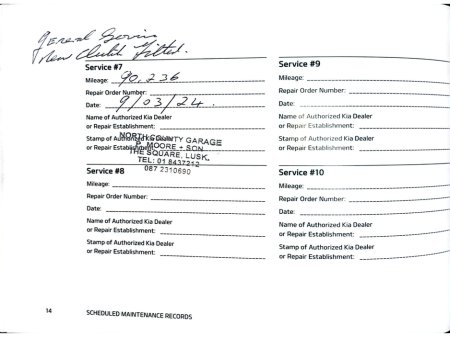 General Servic
New Clutch Fitted.
Service #7
Mileage: 90,236
Repair Order Number:
Date: 9/03/24.
Name of Authorized Kia Dealer
or Repair Establishment:
Stamp of Authorized Kia Dealer
or Repair Establishment:
NORTH COUNTY GARAGE
P. MOORE + SON
THE SQUARE, LUSK,
TEL: 01 8437212
087 2310690
Service #8
Mileage:
Repair Order Number:
Date:
Name of Authorized Kia Dealer
or Repair Establishment:
Stamp of Authorized Kia Dealer
or Repair Establishment:
Service #9
Mileage:
Repair Order Number:
Date:
Name of Authorized Kia Dealer
or Repair Establishment:
Stamp of Authorized Kia Dealer
or Repair Establishment:
Service #10
Mileage:
Repair Order Number:
Date:
Name of Authorized Kia Dealer
or Repair Establishment:
Stamp of Authorized Kia Dealer
or Repair Establishment:
14 SCHEDULED MAINTENANCE RECORDS